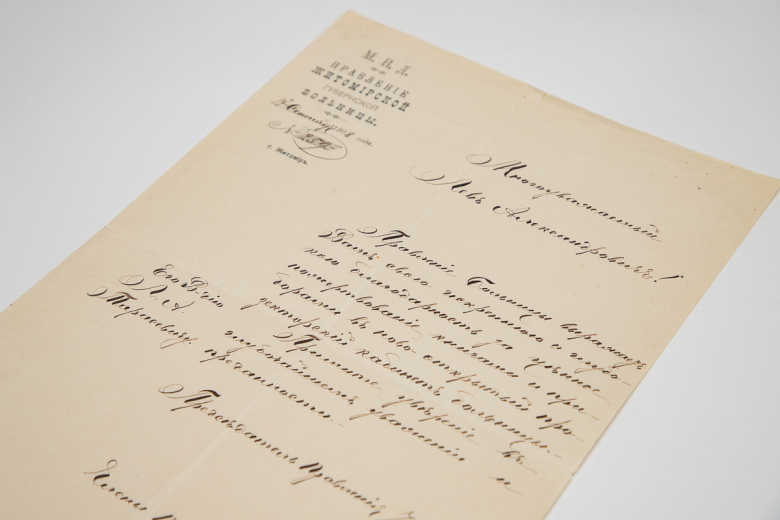 М. В. Д.
ПРАВЛЕНІЕ
ЖИТОМІРСКОЙ
ГУБЕРНСКОЙ
БОЛЬНИЦЫ.
года.
№
г. Житоміръ.
Многоуважаемый
Левъ Александровичъ!
Правленіе Больницы выражаетъ
Вамъ свою искреннюю и глубо-
кую благодарность за цѣнное
пожертвованіе книгами и при-
борами въ ново-открытый про-
зекторскій кабинетъ больницы.
Примите увѣреніе въ
глубочайшемъ уваженіи и
преданности.
Его Всцію
Л. А.
Предсѣдатель Правленія
Члены